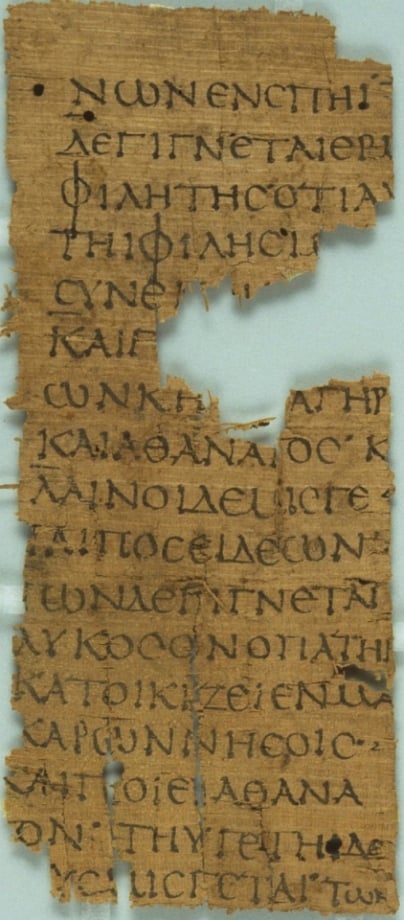 ΝωΝΕΝϹΠΗΙ
ΔΕΓΙΓΝΕΤΑΙΕΡΜ
ΦΙΛΗΤΗϹΟΤΙΑΥ
ΤΗΙΦΙΛΗϹΙΜ
ϹΥΝΕ
ΚΑΙΓ
ωΝΚΗ ΑΓΗΡ
ΚΑΙΑΘΑΝΑΤΟϹ Κ
ΛΑΙΝΟΙΔΕΜΙϹΓΕ
ΤΑΙΠΟϹΕΙΔΕωΝ
ΤωΝΔΕΓΙΓΝΕΤΑΙ
ΛΥΚΟϹΟΝΟΠΑΤΗΡ
ΚΑΤΟΙΚΙΖΕΙΕΝΜΑ
ΚΑΡωΝΝΗϹΟΙϹ
ΚΑΙΠΟΙΕΙΑΘΑΝΑ
ΤΟΝ ΤΗΥΓΕΤΗΙΔΕ
ΥϹΜΙϹΓΕΤΑΙΤωΝ